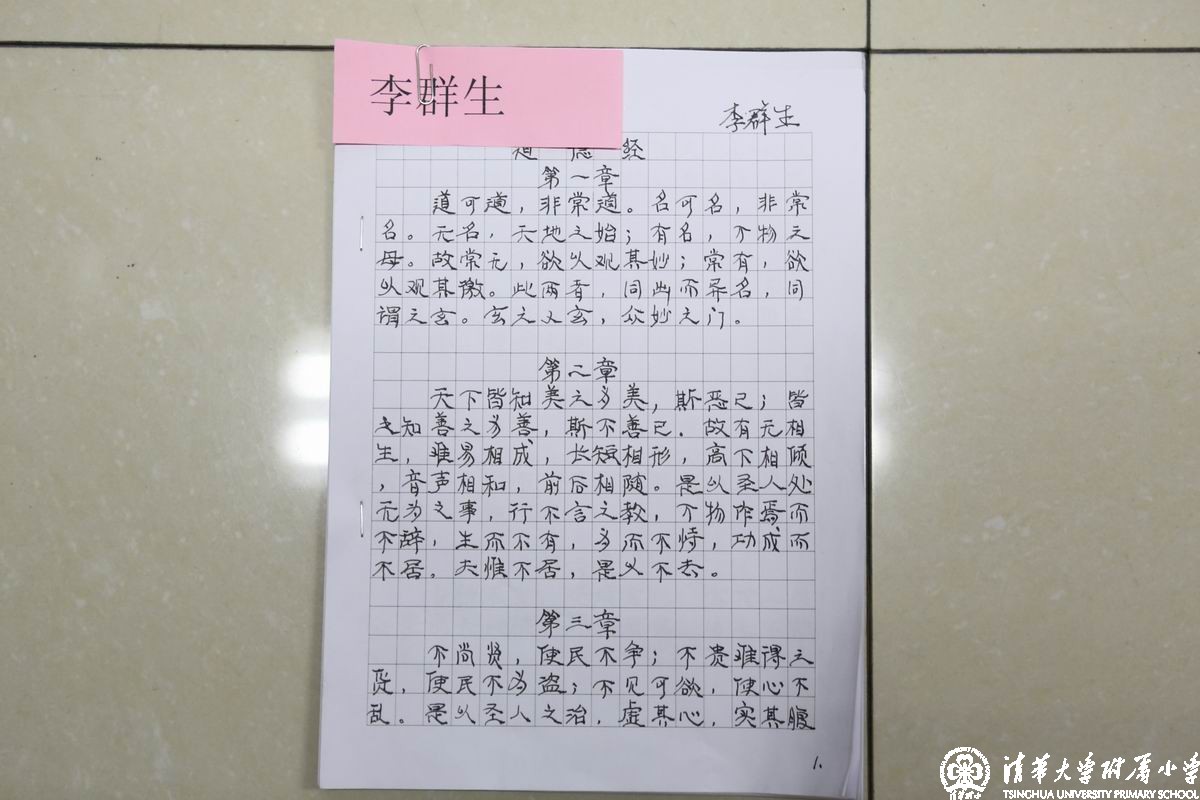 李群生
李群生
道德经
第一章
道可道，非常道。名可名，非常
名。无名，天地之始；有名，万物之
母。故常无，欲以观其妙；常有，欲
以观其徼。此两者，同出而异名，同
谓之玄。玄之又玄，众妙之门。
第二章
天下皆知美之为美，斯恶已；皆
之知善之为善，斯不善已．故有无相
生，难易相成，长短相形，高下相倾
，音声相和，前后相随。是以圣人处
无为之事，行不言之教，万物作焉而
不辞，生而不有，为而不恃，功成而
不居。夫惟不居，是以不去。
第三章
不尚贤，使民不争；不贵难得之
货，使民不为盗；不见可欲，使心不
乱。是以圣人之治，虚其心，实其腹
1.
清华大学附属小学
TSINGHUA UNIVERSITY PRIMARY SCHOOL